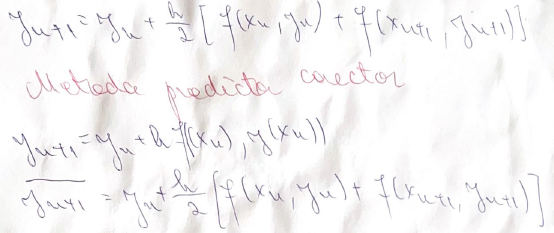 y_{n+1} = y_n + \frac{h}{2} [ f(x_n, y_n) + f(x_{n+1}, y_{n+1}) ]
Metoda predictor corector
y_{n+1} = y_n + h f((x_n), y(x_n))
\overline{y_{n+1}} = y_n + \frac{h}{2} [ f(x_n, y_n) + f(x_{n+1}, y_{n+1}) ]